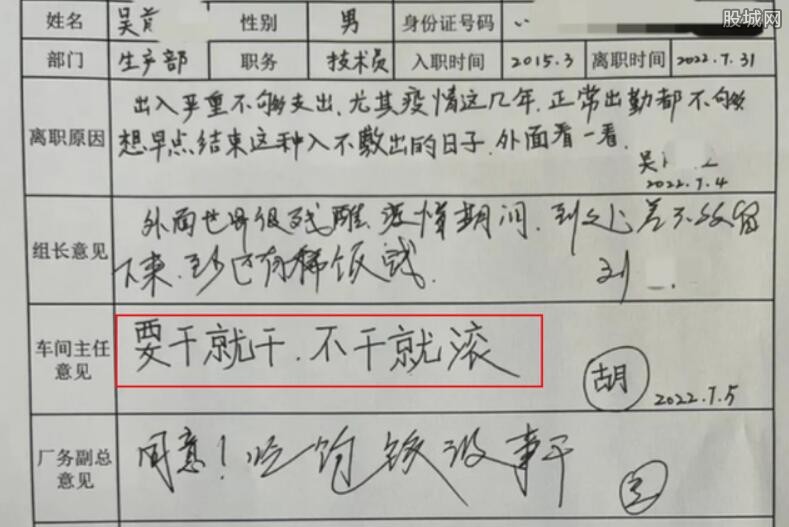 股城网
姓名 吴 性别 男 身份证号码
部门 生产部 职务 技术员 入职时间 2015.3 离职时间 2022.7.31
出入严重不够支出,尤其疫情这几年,正常出勤都不够
离职原因 想早点结束这种入不敷出的日子,外面看一看.
吴
2022.7.4
外面世界很残酷,疫情期间,到处
组长意见 下来,至少还有稀饭
刘
车间主任意见 要干就干.不干就滚
胡 2022.7.5
厂务副总意见 同意!吃饱饭没事干